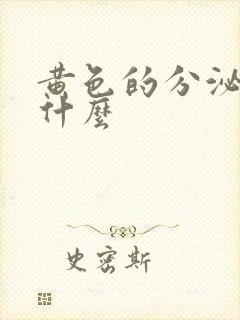 黄色的分泌
什麼
史密斯